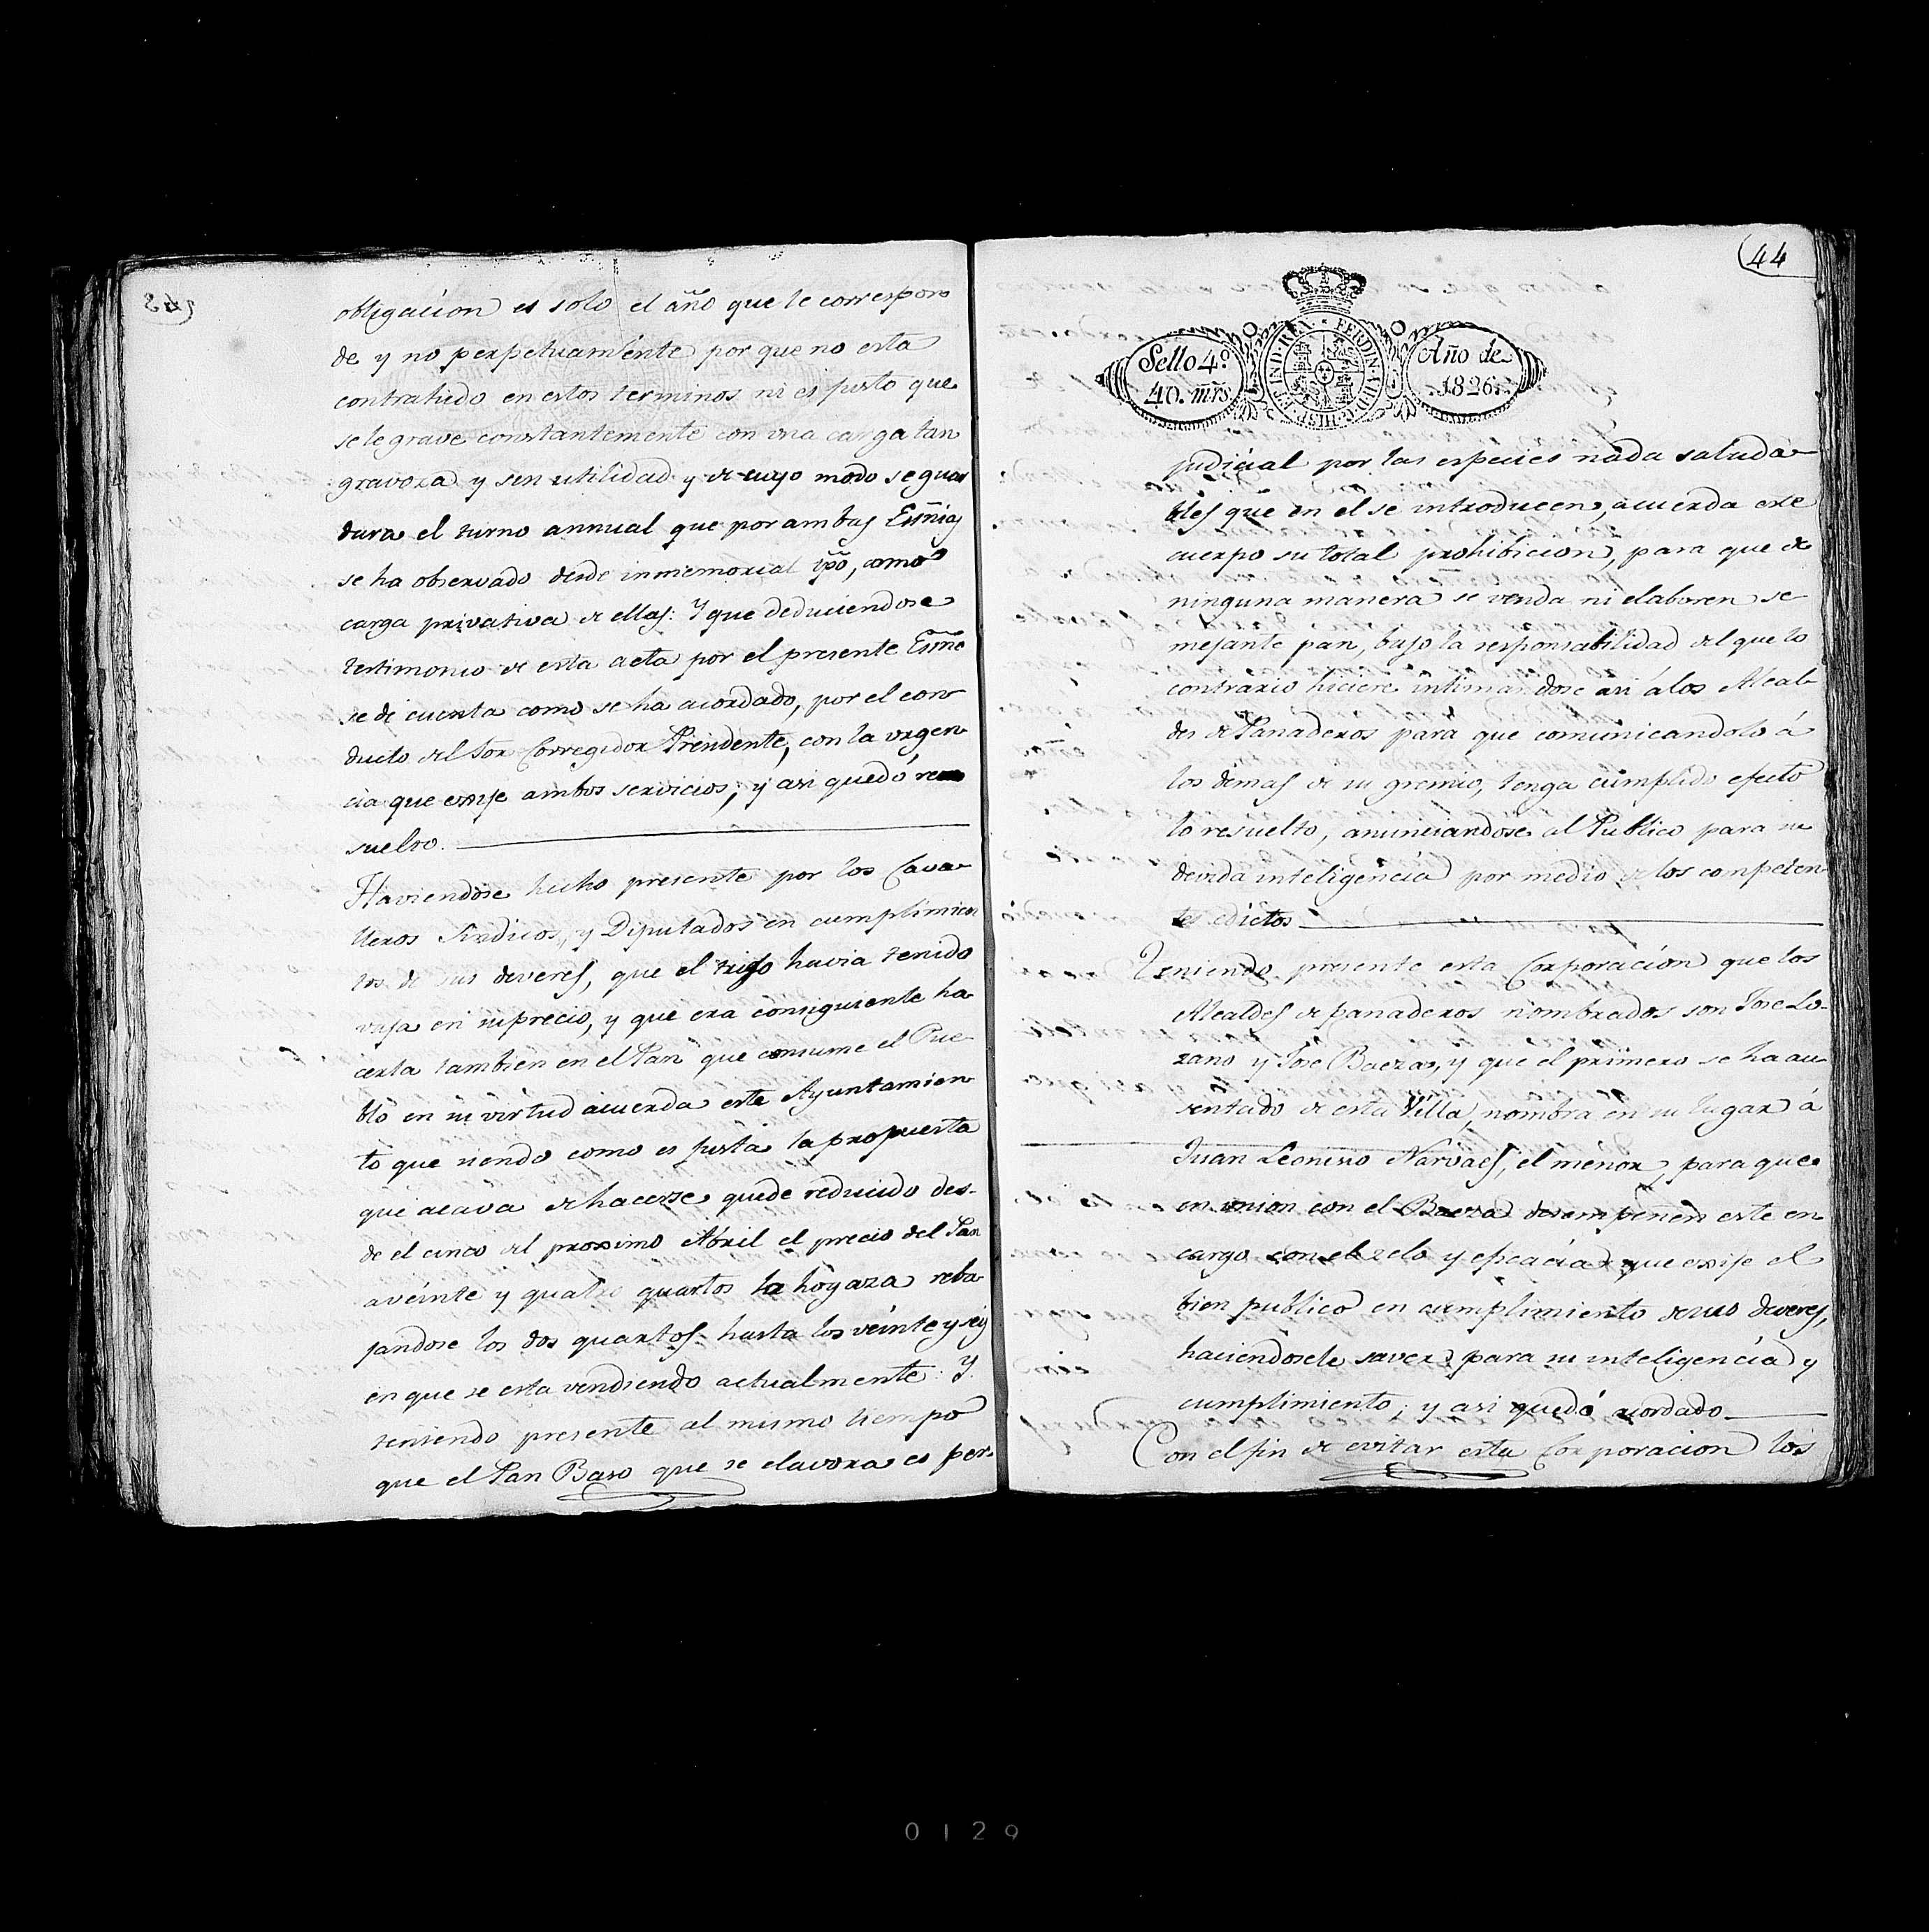 obligacion es solo el año que le correspon
de y no perpetuamente por que no esta
contrahido en estos terminos ni es justo que
se le grave constantemente con una carga tan
gravoza y sin utilidad y de cuyo modo se guar
dara el turno annual que por ambas Esñias
se ha observado desde inmemorial tpõ, como
carga privativa de ellas: Y que deduciendose
testimonio de esta acta por el presente Esñe
se dé cuenta como se ha acordado, por el con
ducto del Sor Corregidor Presidente, con la urgen
cia que exije ambos servicios; y asi quedó re
suelto.
Haviendose hecho presente por los Cava
lleros Sindicos, y Diputados en cumplimien
tos de sus deveres, que el trigo havia tenido
vaja en su precio, y que era consiguiente ha
cerla tambien en el Pan que consume el Pue
blo en su virtud acuerda este Ayuntamien
to que siendo como es justa la propuesta
que acava de hacerse quede reducido des-
de el cinco del proximo Abril el precio del Pan
a veinte y quatro quartos la hogaza reba
jandose los dos quartos hasta los veinte y seis
en que se esta vendiendo actualmente: Y
teniendo presente al mismo tiempo
que el Pan Bazo que se elavora es per-
44
Sello 4º
40. mrs.
FERDIN. VII. D. G. HISP. ET IND. REX
Año de
1826.
judicial por las especies nada saluda-
bles que en el se introducen, acuerda este
cuerpo su total prohibicion, para que de
ninguna manera se venda ni elaboren se
mejante pan, bajo la responsabilidad del que lo
contrario hiciere intimandose asi á los Alcal-
des de Panaderos para que comunicandolo á
los demas de su gremio, tenga cumplido efecto
lo resuelto, anunciandose al Publico para su
devida inteligencia por medio de los competen
tes edictos
Teniendo presente esta Corporacion que los
Alcaldes de panaderos nombrados son Jose Lo-
zano y Jose Baeza, y que el primero se ha au
sentado de esta Villa, nombra en su lugar á
Juan Leonisio Narvaes, el menor, para que
en union con el Baeza desempeñen este en
cargo con el zelo y eficacia que exije el
bien publico en cumplimiento de sus deveres,
haciendosele saver para su inteligencia y
cumplimiento; y asi quedó acordado
Con el fin de evitar esta Corporacion los
0129